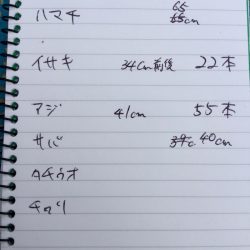 65
ハマチ 65cm
イサキ 34cm前後 22本
アジ 41cm 55本
サバ 39c 40cm
タチウオ
チダリ